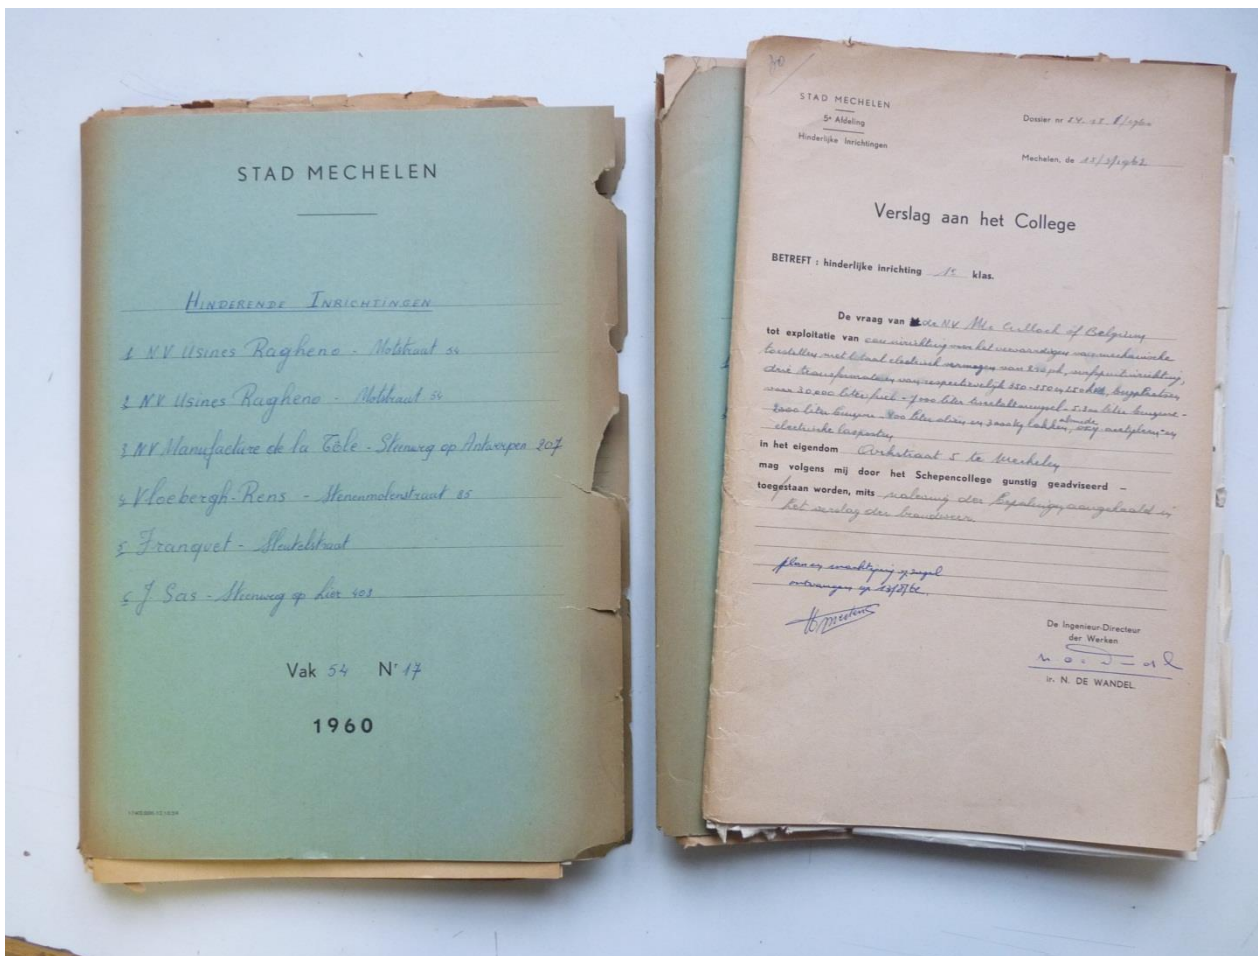 STAD MECHELEN
HINDERENDE INRICHTINGEN
1 NV Usines Ragheno - Motstraat 54
2 NV Usines Ragheno - Motstraat 54
3 NV Manufacture de la Tôle - Steenweg op Antwerpen 207
4 Vloebergh-Rens - Stenenmolenstraat 85
5 Franquet - Sleutelstraat
6 J Sas - Steenweg op Lier 403
Vak 54 Nr 17
1960
STAD MECHELEN
5e Afdeling
Hinderlijke Inrichtingen
Dossier nr
Mechelen, de 15/3/1962
Verslag aan het College
BETREFT : hinderlijke inrichting 1e klas.
De vraag van de NV Mc Culloch of Belgium
tot exploitatie van een inrichting voor het vervaardigen van mechanische
toestellen met totaal electrisch vermogen van inrichting,
drie transformatoren van respectievelijk
voor 30.000 liter fuel - 7000 liter benzine -
2000 liter benzine - 400 liter oliën en lakken, acetyleen- en
electrische lasposten
in het eigendom te Mechelen
mag volgens mij door het Schepencollege gunstig geadviseerd –
toegestaan worden, mits naleving der bepalingen aangehaald in
het verslag der brandweer
ontvangen op
De Ingenieur-Directeur
der Werken
ir. N. DE WANDEL.